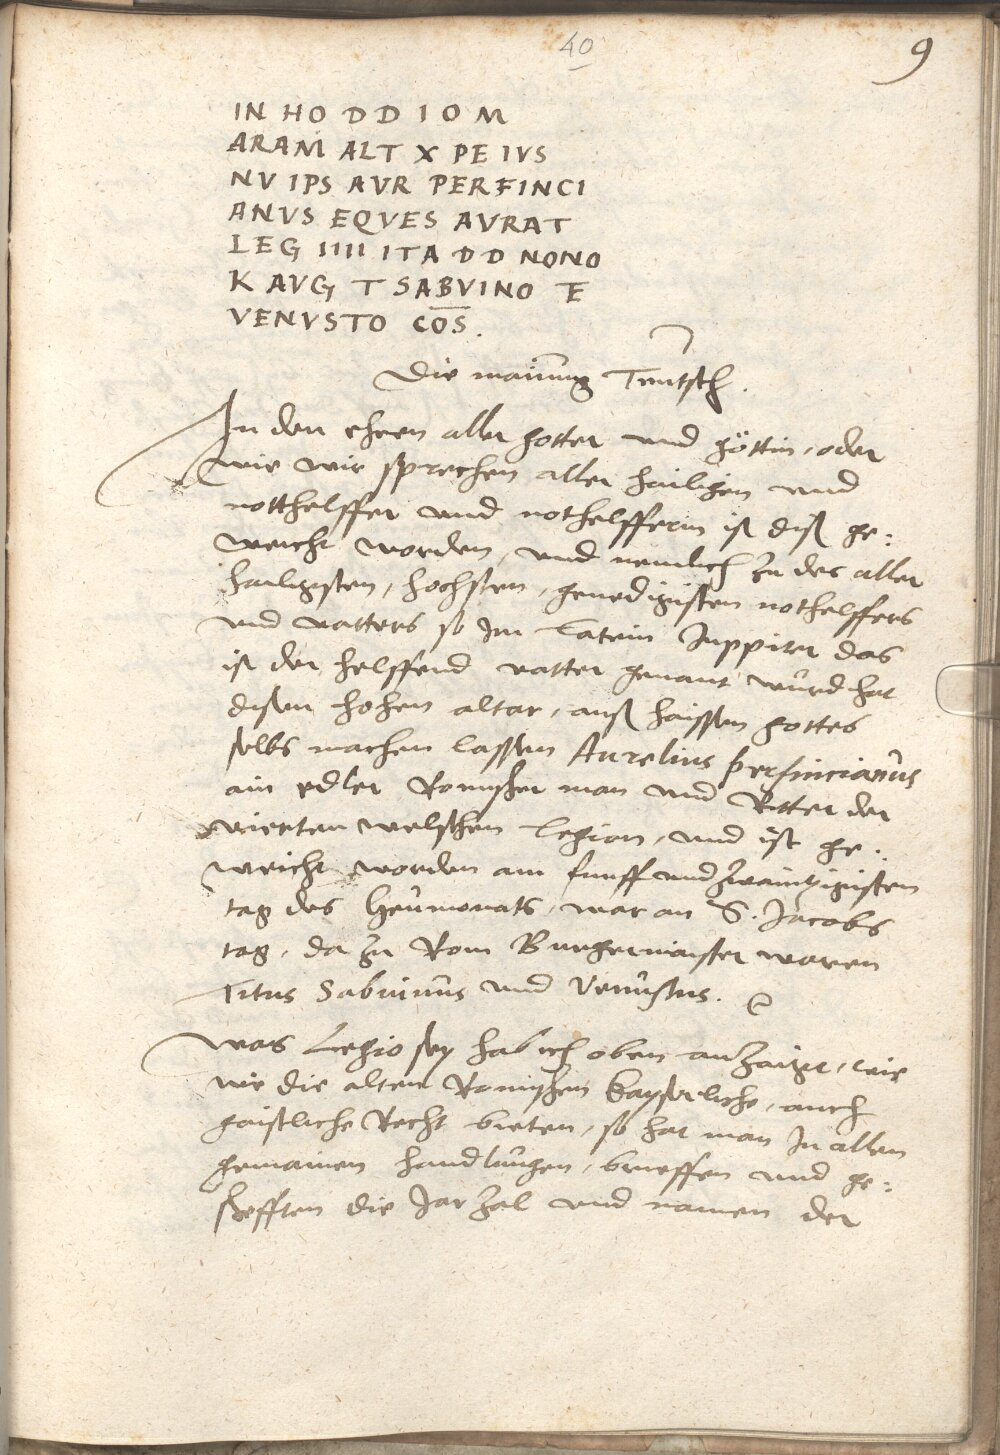 40
9
IN HO D D I O M
ARAM ALT X PE IVS
NV IPS AVR PERFINCI
ANVS EQVES AVRAT
LEG IIII ITA D D NONO
K AVG T SABVINO E
VENVSTO COS.
Die mainung Teutsch.
In den ehren aller gotter und göttin, oder
wie wir sprechen aller hailigen und
notthelffer und nothelfferin ist diß ge:
weicht worden, und nemlich zu des aller
hailigisten, hochsten, genedigisten nothelffers
und vatters so im latein Juppiter das
ist der helffend vatter genant würd hat
disen hohen altar, auß haissen gottes
selbs machen lassen Aurelius perfincianus
ain edler Romischer man und Ritter der
vierten welschen legion, und ist ge:
weicht worden am funff und zwaintzigisten
tag des Heümonats, war an S. Jacobs
tag, da zu Rom Burgermaister waren
Titus Sabuinus und Venustus.
Was Legio sey hab ich oben anzaigt, wie
wie die alten Romischen kayserliche, auch
gaistliche Recht bieten, so hat man In allen
gemainen handlungen, brieffen und ge:
schefften die Jarzal und namen der